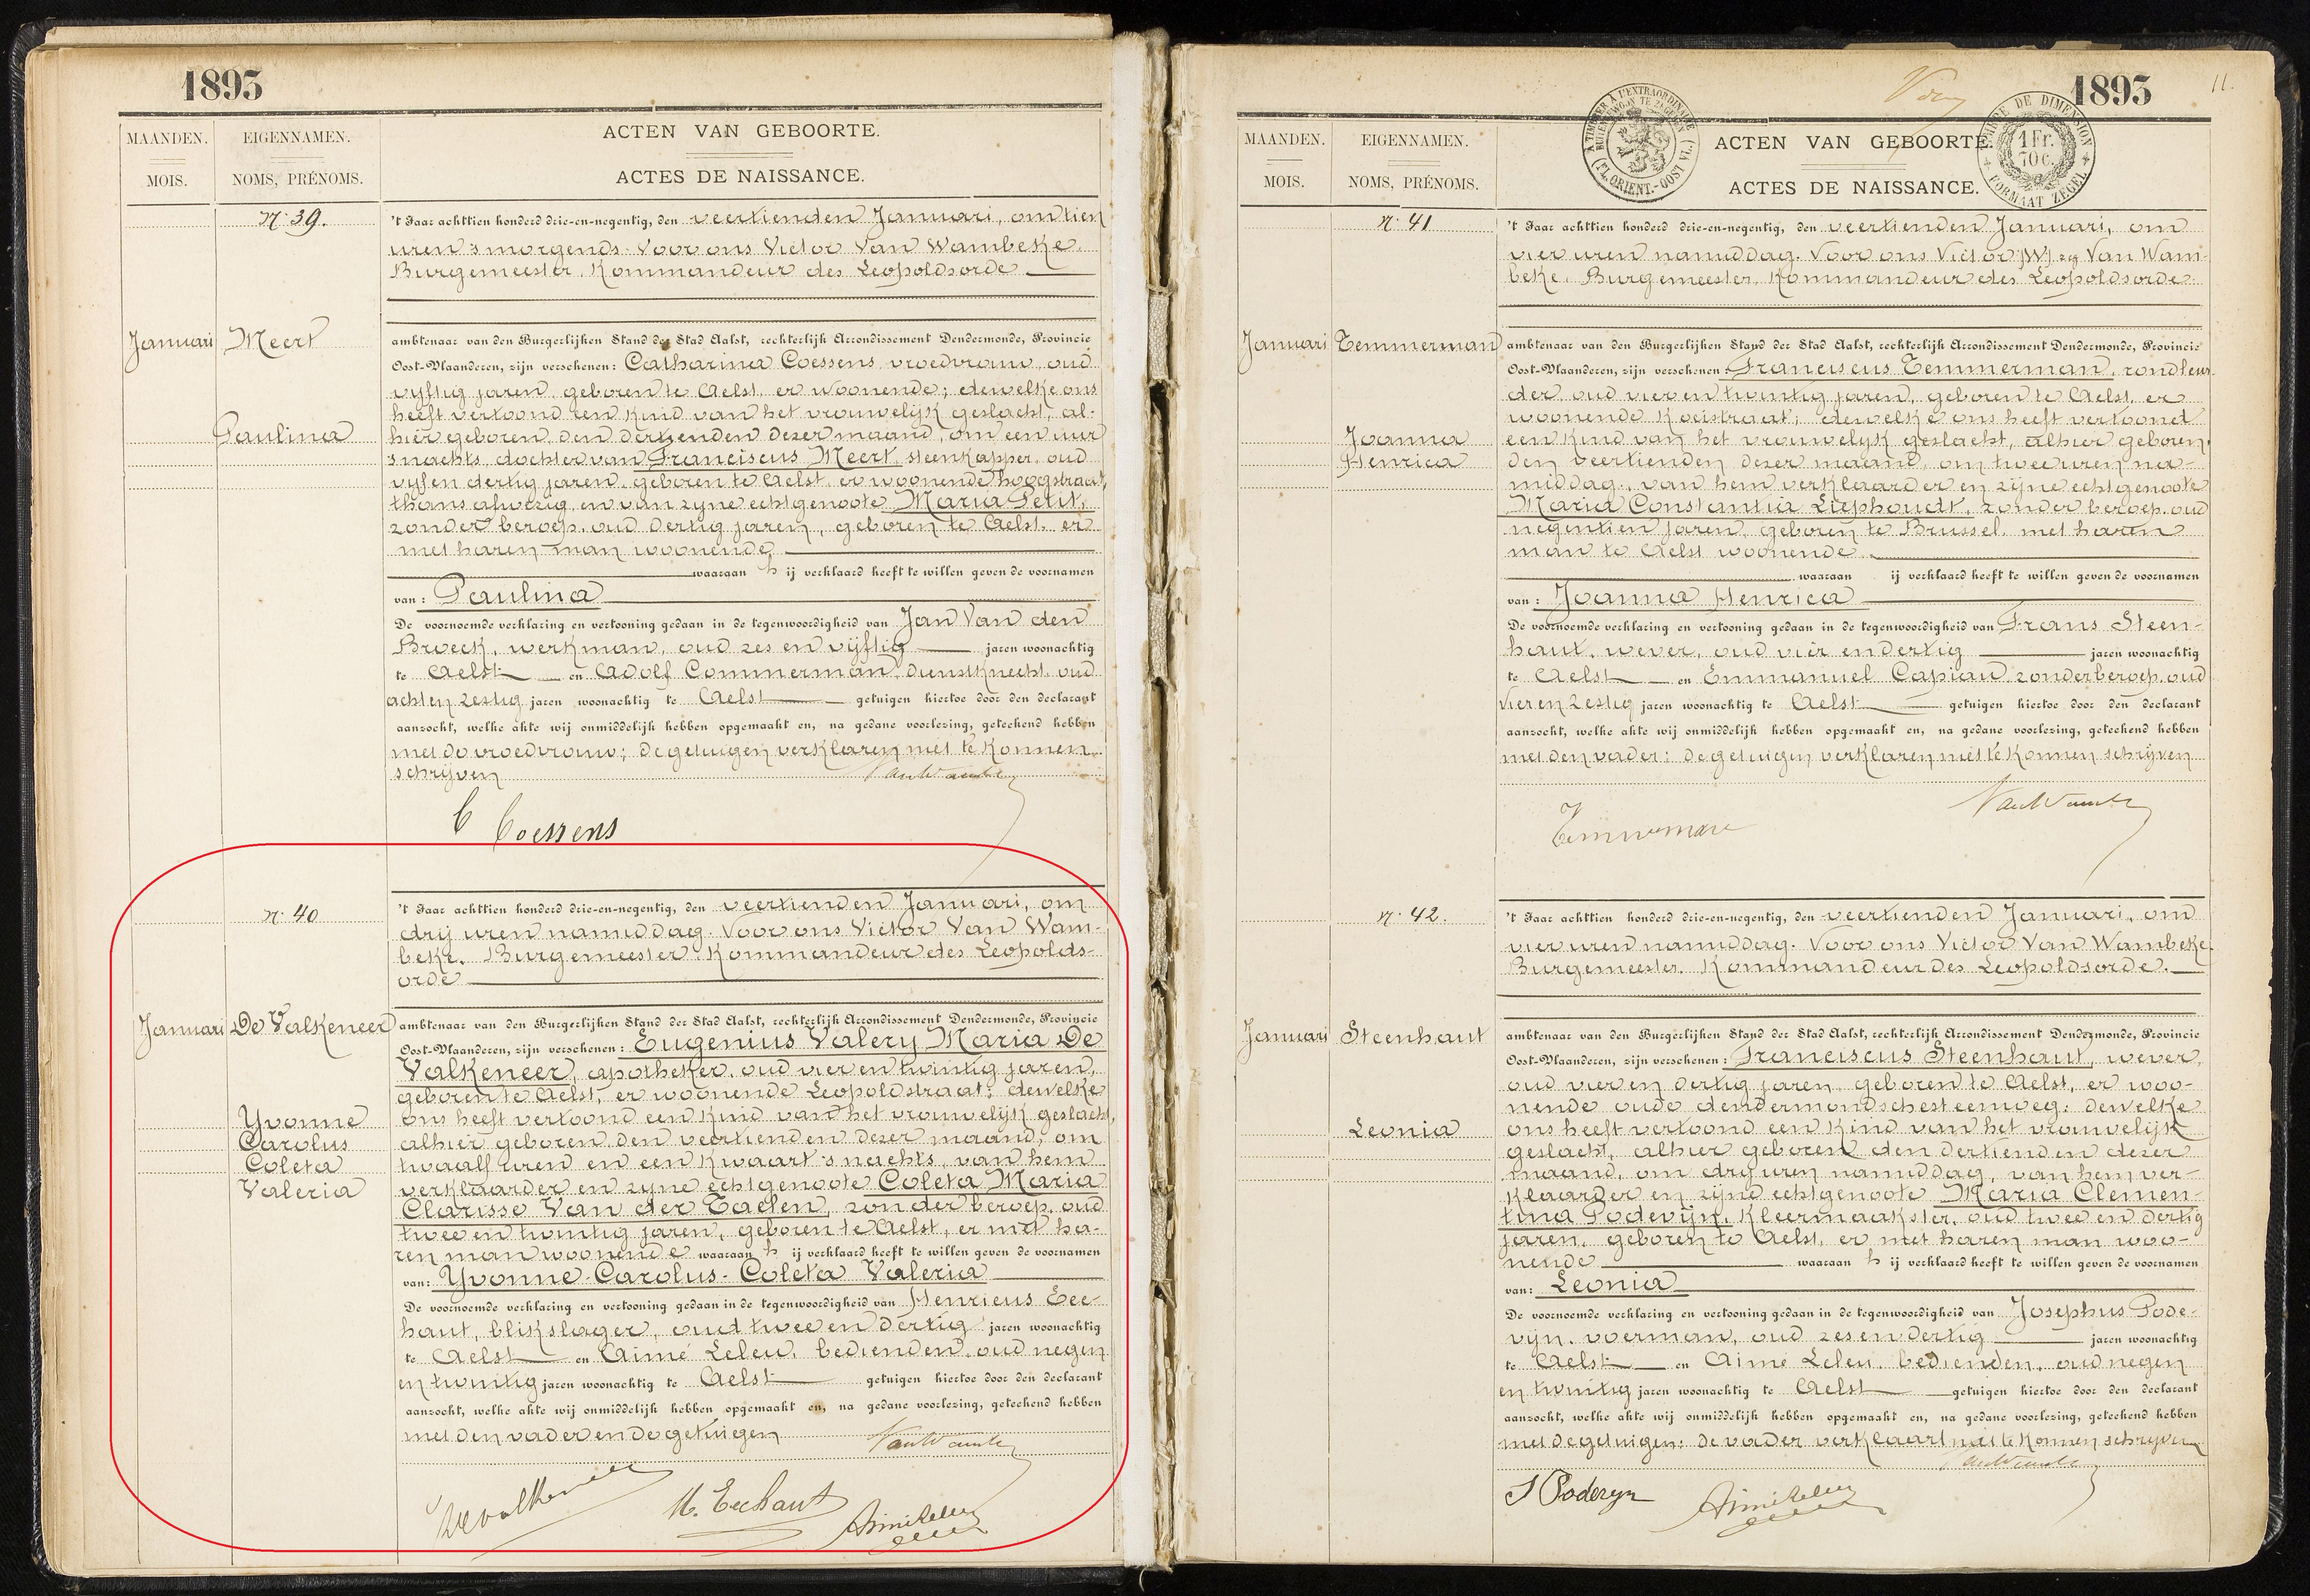 1893
MAANDEN.
MOIS.
EIGENNAMEN.
NOMS, PRÉNOMS.
ACTEN VAN GEBOORTE.
ACTES DE NAISSANCE.
N. 39.
Januari
Meert
Paulina
't Jaar achttien honderd drie-en-negentig, den veertienden Januari, om tien
uren 's morgends. Voor ons Victor Van Wambeke.
Burgemeester, Kommandeur des Leopoldsorde
ambtenaar van den Burgerlijken Stand der Stad Aalst, rechterlijk Arrondissement Dendermonde, Provincie
Oost-Vlaanderen, zijn verschenen: Catharina Coessens vroedvrouw, oud
vyftig jaren, geboren te Aelst, er woonende; dewelke ons
heeft vertoond een kind van het vrouwelijk geslacht, al-
hier geboren, den dertienden dezer maand, om een uur
's nachts, dochter van Franciscus Meert, steenkapper, oud
vyf en dertig jaren, geboren te Aelst, er woonende hoogstraat,
thans afwezig, en van zyne echtgenoote Maria Petit,
zonder beroep, oud dertig jaren, geboren te Aelst, er
met haren man woonende,
waaraan h ij verklaard heeft te willen geven de voornamen
van: Paulina
De voornoemde verklaring en vertooning gedaan in de tegenwoordigheid van Jan Van den
Broeck, werkman, oud zes en vijftig jaren woonachtig
te Aelst en Adolf Commerman dienstknecht, oud
acht en zestig jaren woonachtig te Aelst getuigen hiertoe door den declarant
aanzocht, welke akte wij onmiddelijk hebben opgemaakt en, na gedane voorlezing, geteekend hebben
met de vroedvrouw; de getuigen verklaren niet te konnen
schrijven
VanWambeke
C Coessens
N. 40
Januari
De Valkeneer
Yvonne
Carolus
Coleta
Valeria
't Jaar achttien honderd drie-en-negentig, den veertienden Januari, om
dry uren namiddag. Voor ons Victor Van Wam-
beke, Burgemeester Kommandeur des Leopolds-
orde
ambtenaar van den Burgerlijken Stand der Stad Aalst, rechterlijk Arrondissement Dendermonde, Provincie
Oost-Vlaanderen, zijn verschenen: Eugenius Valery Maria De
Valkeneer, apotheker, oud vier en twintig jaren,
geboren te Aelst, er woonende Leopoldstraat; dewelke
ons heeft vertoond een kind van het vrouwelijk geslacht,
alhier geboren den veertienden dezer maand, om
twaalf uren en een kwaart 's nachts, van hem
verklaarder en zyne echtgenoote Coleta Maria
Clarisse Van der Taelen, zonder beroep, oud
twee en twintig jaren, geboren te Aelst, er met ha-
ren man woonende waaraan h ij verklaard heeft te willen geven de voornamen
van: Yvonne-Carolus-Coleta Valeria
De voornoemde verklaring en vertooning gedaan in de tegenwoordigheid van Henricus Eec-
haut, blikslager, oud twee en dertig jaren woonachtig
te Aelst en Aimé Leleu, bedienden, oud negen
en twintig jaren woonachtig te Aelst getuigen hiertoe door den declarant
aanzocht, welke akte wij onmiddelijk hebben opgemaakt en, na gedane voorlezing, geteekend hebben
met den vader en de getuigen
VanWambeke
Devalkeneer
H. Eechaut
Aimé Leleu
1893
11.
A TIMBRER A L'EXTRAORDINAIRE
(FL. ORIENT.-OOST VL.)
TIMBRE DE DIMENSION
1 Fr.
70 c.
FORMAAT ZEGEL
MAANDEN.
MOIS.
EIGENNAMEN.
NOMS, PRÉNOMS.
ACTEN VAN GEBOORTE.
ACTES DE NAISSANCE.
N. 41
Januari
Temmerman
Joanna
Henrica
't Jaar achttien honderd drie-en-negentig, den veertienden Januari, om
vier uren namiddag. Voor ons Victor Van Wam-
beke, Burgemeester, Kommandeur des Leopoldsorde.
ambtenaar van den Burgerlijken Stand der Stad Aalst, rechterlijk Arrondissement Dendermonde, Provincie
Oost-Vlaanderen, zijn verschenen: Franciscus Temmerman, rondleur-
der, oud vier en twintig jaren, geboren te Aelst, er
woonende Koeistraat; dewelke ons heeft vertoond
een kind van het vrouwelyk geslacht, alhier geboren,
den veertienden dezer maand, om twee uren na-
middag, van hem verklaarder en zijne echtgenoote
Maria Constantia Liephoudt, zonder beroep, oud
negentien jaren, geboren te Brussel, met haren
man te Aelst woonende.
waaraan ij verklaard heeft te willen geven de voornamen
van: Joanna Henrica
De voornoemde verklaring en vertooning gedaan in de tegenwoordigheid van Frans Steen-
haut, wever, oud vier en dertig jaren woonachtig
te Aelst en Emmanuel Capiau, zonder beroep, oud
vier en zestig jaren woonachtig te Aelst getuigen hiertoe door den declarant
aanzocht, welke akte wij onmiddelijk hebben opgemaakt en, na gedane voorlezing, geteekend hebben
met den vader: de getuigen verklaren niet te konnen schrijven
VanWambeke
Temmerman
N. 42.
Januari
Steenhaut
Leonia
't Jaar achttien honderd drie-en-negentig, den veertienden Januari, om
vier uren namiddag. Voor ons Victor Van Wambeke
Burgemeester, Kommandeur des Leopoldsorde.
ambtenaar van den Burgerlijken Stand der Stad Aalst, rechterlijk Arrondissement Dendermonde, Provincie
Oost-Vlaanderen, zijn verschenen: Franciscus Steenhaut, wever,
oud vier en dertig jaren, geboren te Aelst, er woo-
nende oude dendermondschesteenweg: dewelke
ons heeft vertoond een kind van het vrouwelijk
geslacht, alhier geboren den dertienden dezer
maand, om dry uren namiddag, van hem ver-
klaarder en zijne echtgenoote Maria Clemen-
tina Podevijn, kleermaakster, oud twee en dertig
jaren, geboren te Aelst, er met haren man woo-
nende waaraan h ij verklaard heeft te willen geven de voornamen
van: Leonia
De voornoemde verklaring en vertooning gedaan in de tegenwoordigheid van Josephus Pode-
vijn, voerman, oud zes en dertig jaren woonachtig
te Aelst en Aimé Leleu, bedienden, oud negen
en twintig jaren woonachtig te Aelst getuigen hiertoe door den declarant
aanzocht, welke akte wij onmiddelijk hebben opgemaakt en, na gedane voorlezing, geteekend hebben
met de getuigen: de vader verklaart niet te konnen schrijven
VanWambeke
J Podevyn
Aimé Leleu